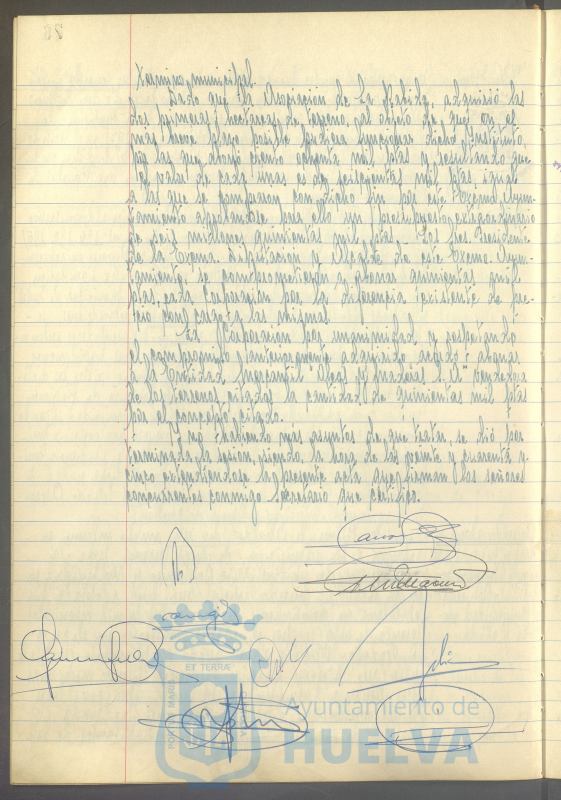 Término municipal.
Dado que la Asociación de La Rábida, adquirió las
dos primeras hectáreas de terreno, al objeto de que en el
más breve plazo posible pudiera funcionar dicho Instituto,
por las que abonó ciento ochenta mil ptas y resultando que
el valor de cada una es de seiscientas mil ptas, igual
a las que se compraron con dicho fin por este Excmo. Ayun-
tamiento aprobándose para ello un presupuesto extraordinario
de seis millones quinientas mil ptas. Los Sres. Presidente
de la Excma. Diputación y Alcalde de este Excmo. Ayun-
tamiento, se comprometieron a abonar quinientas mil
ptas, cada Corporación por la diferencia existente de pre-
cio con cargo a las mismas.
La Corporación por unanimidad y respetando
el compromiso anteriormente adquirido acordó abonar
a la Entidad Mercantil " y Maderas S.A" vendedora
de los terrenos citados la cantidad de quinientas mil ptas
por el concepto citado.
Y no habiendo más asuntos de que tratar se dió por
terminada la sesión, siendo la hora de las veinte y cuarenta y
cinco extendiéndose la presente acta que firman los señores
concurrentes conmigo Secretario que certifico.
ET TERRÆ
Ayuntamiento de
HUELVA